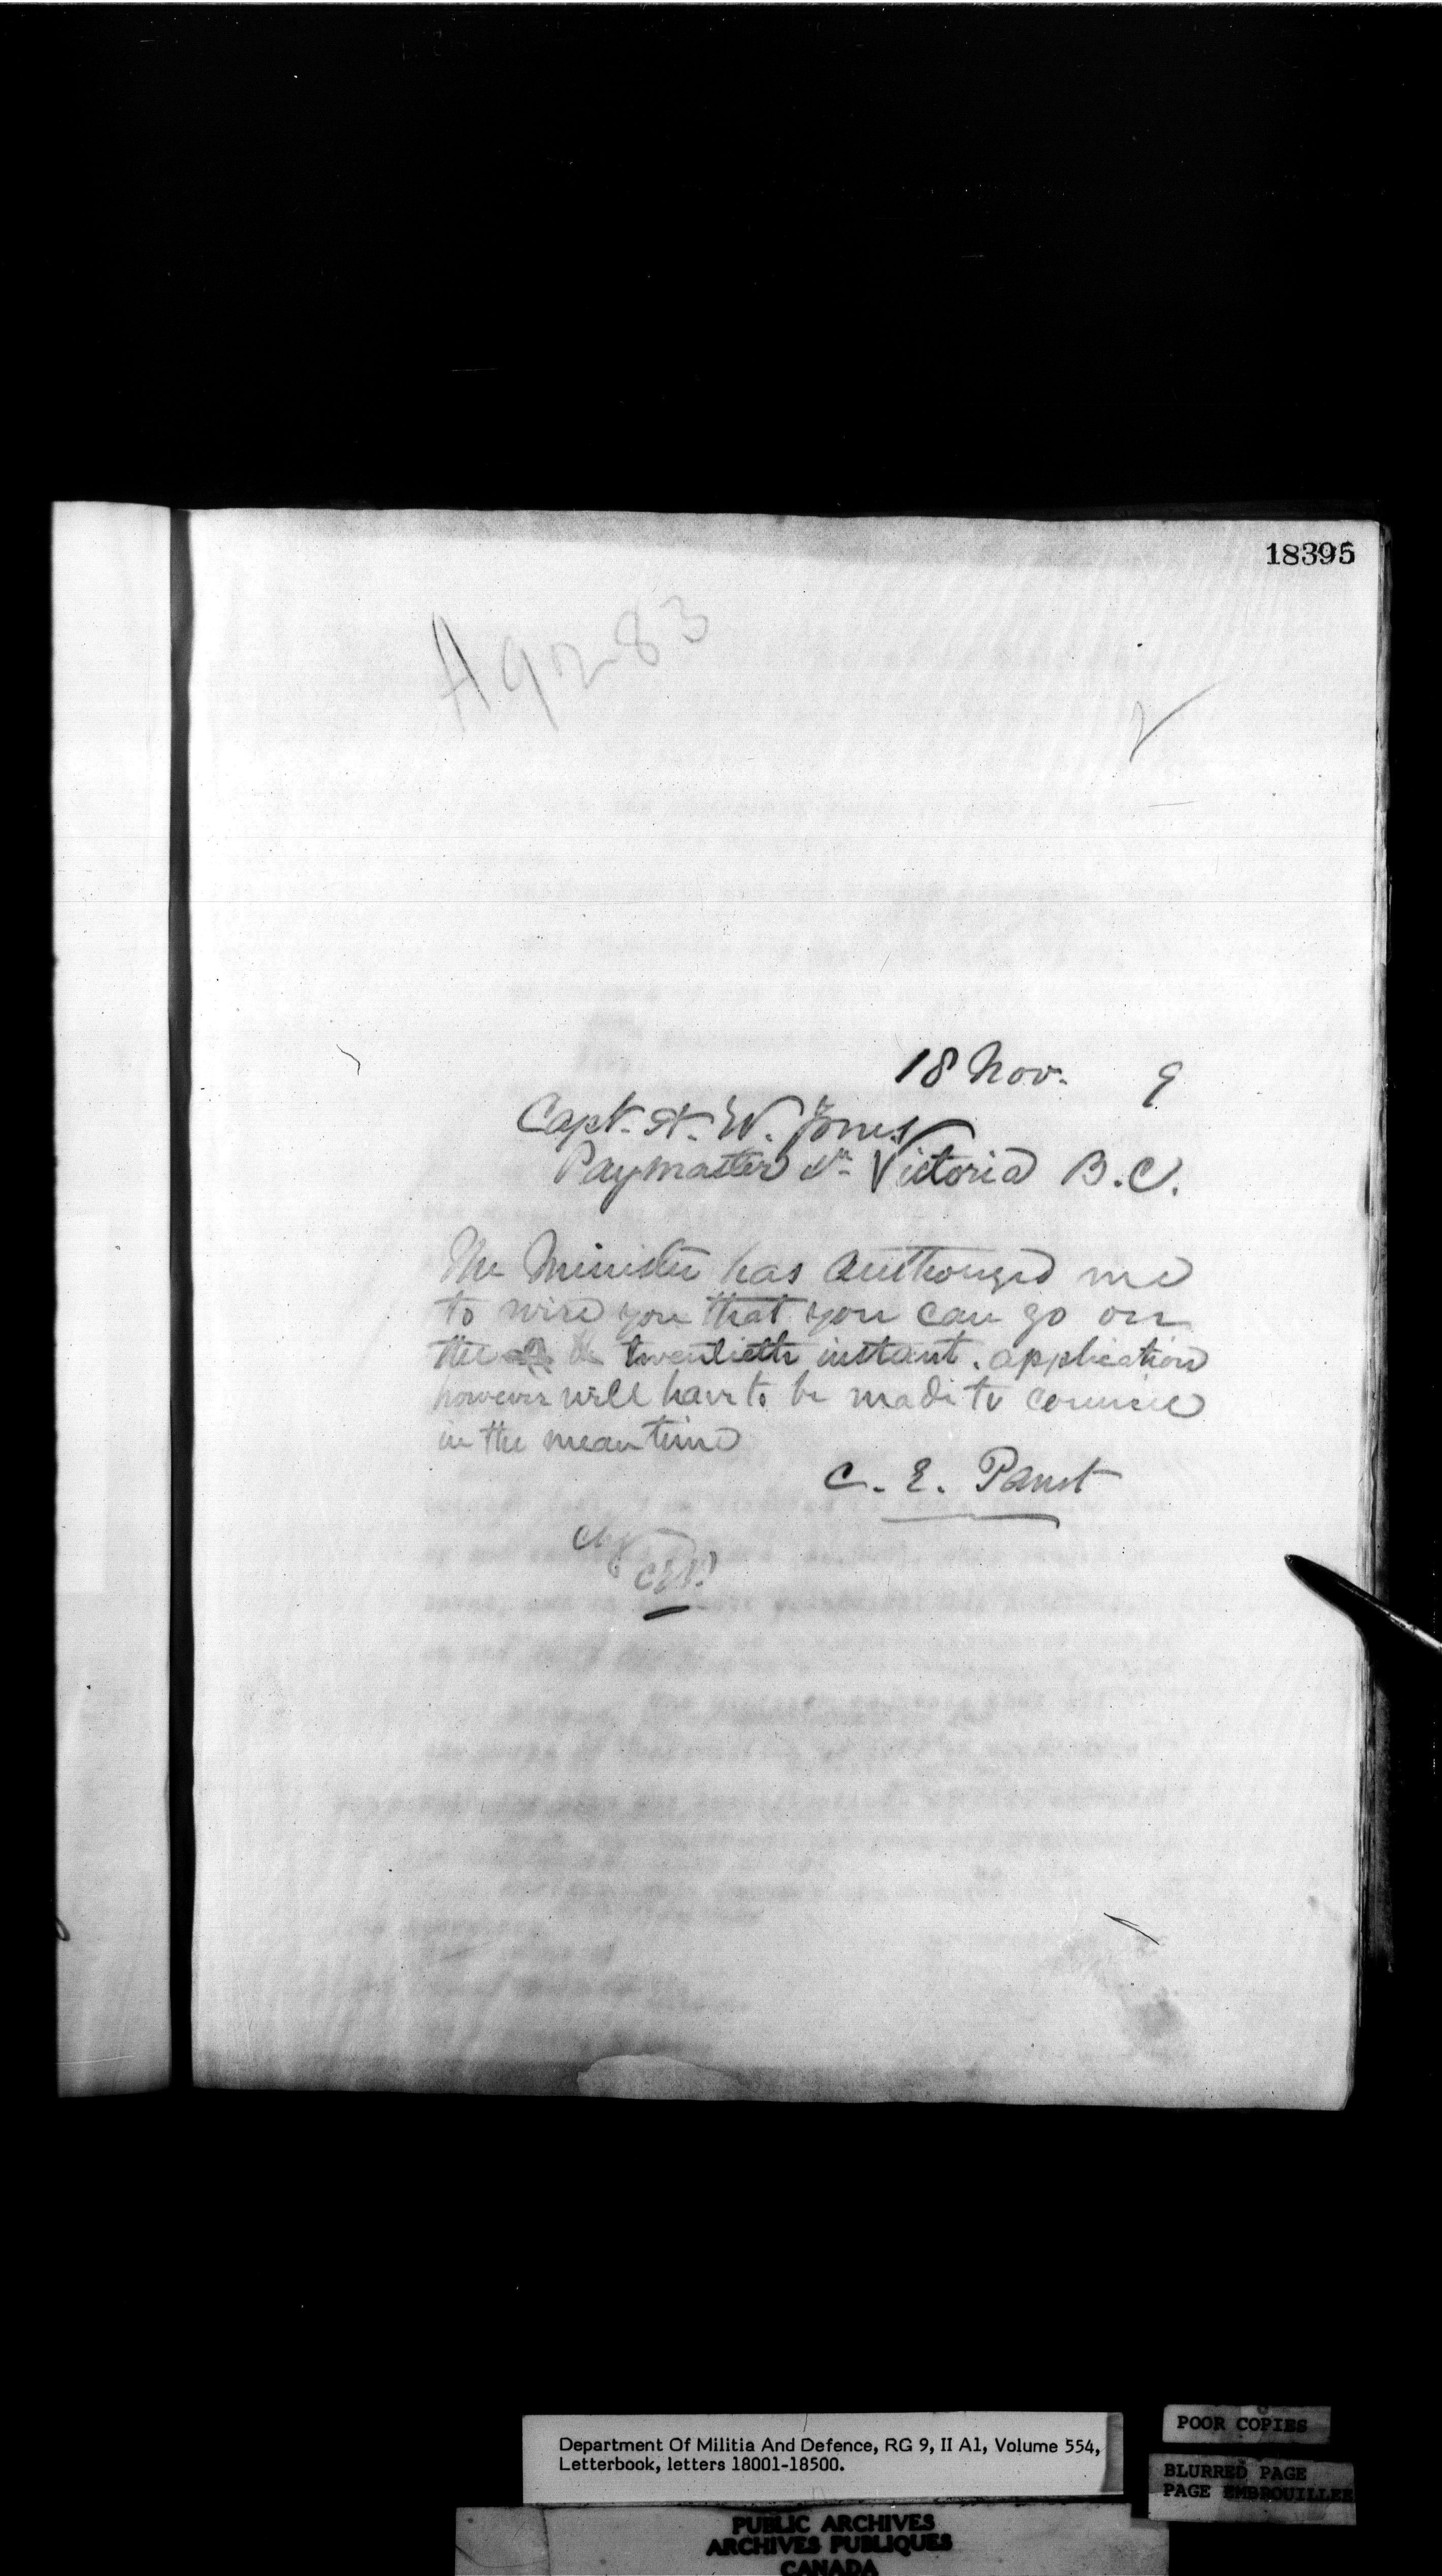 18395
A9283
18 Nov. 9
Capt. H. W. Jones
Paymaster Victoria B.C.
The Minister has authorized me
to wire you that you can go on
the twentieth instant. application
however will have to be made to council
in the mean time
C. E. Panet
Chg
CEP
Department Of Militia And Defence, RG 9, II A1, Volume 554,
Letterbook, letters 18001-18500.
POOR COPIES
BLURRED PAGE
PAGE EMBROUILLEE
PUBLIC ARCHIVES
ARCHIVES PUBLIQUES
CANADA